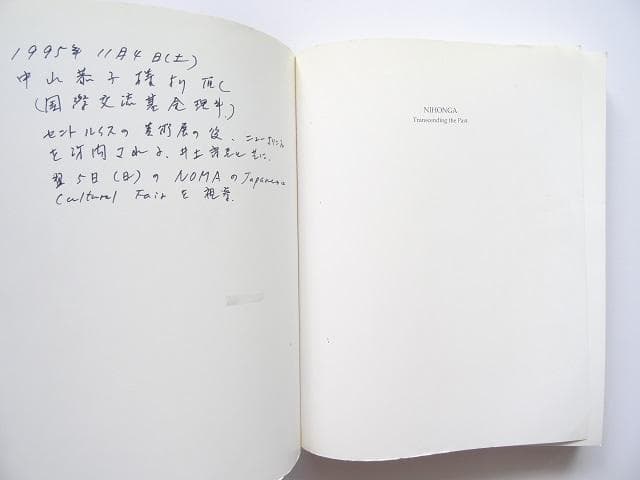 1995年 11月4日(土)
中山恭子様より頂く
(国際交流基金理事)
セントルイスの美術展の後、ニューオリンズ
を訪問される、井土
翌5日(日)の NOMA の Japanese
Cultural Fair を視察.
NIHONGA
Transcending the Past